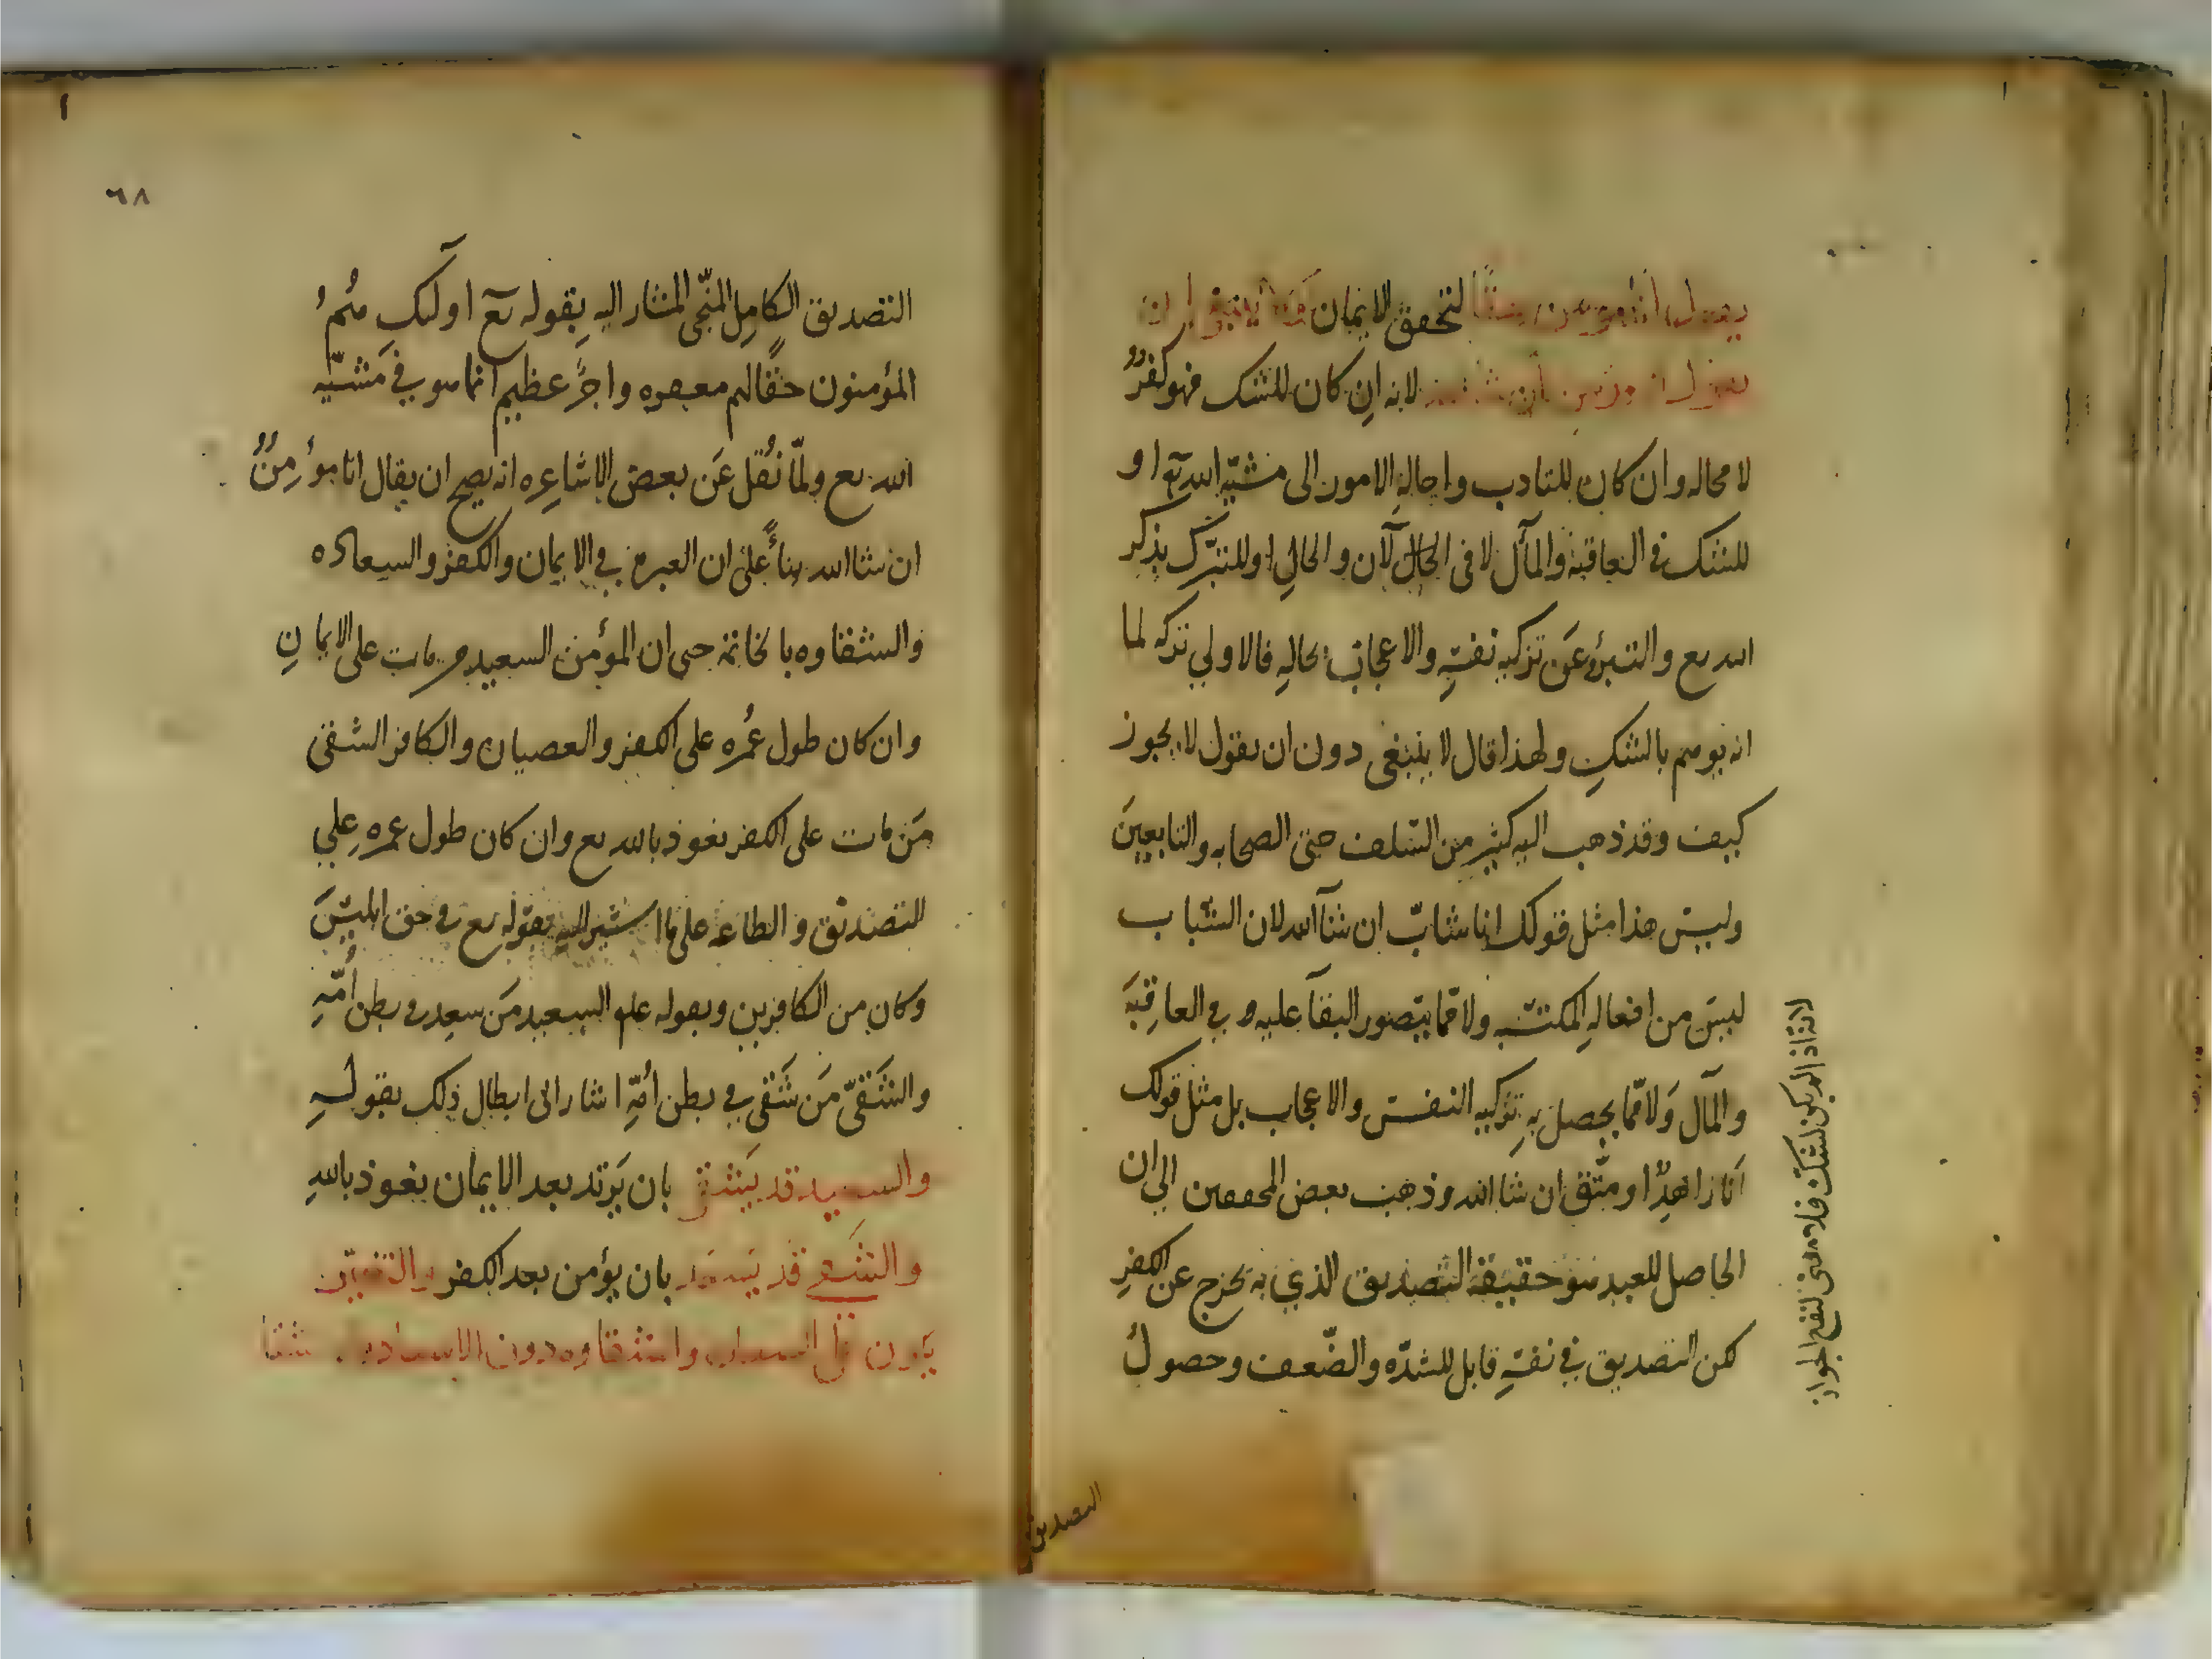 يقول انا مؤمن حقًا لتحقق الايمان له ولا ينبغي ان
يقول انا مؤمن ان شا الله لانه ان كان للشك فهو كفرٌ
لا محاله وان كان للتادب واحالة الامور الى مشيّة الله تع او
للشك في العاقبة والمآل لا في الحال لآن والحال او للتبرّك بذكر
الله تع والتبرؤ عَن تزكيه نفسهِ والاعجاب بحالهِ فالاولي تركه لما
انه يوهم بالشك ولهذا قال لا ينبغي دون ان يقول لا يجوز
كيف وقد ذهب اليه كثير من السّلف حتى الصحابه والتابعينَ
وليسَ هذا مثل قولك انا شابّ ان شآ الله لان الشّباب
ليسَ من افعالهِ المكتسَبه ولا ممّا يتصور البقآ عليه و في العاقبَة
والمآل وَلا ممّا يحصل بهِ تزكيه النفس والاعجاب بل مثل قولك
اَنا زاهدٌ او متّق ان شا الله وذهب بعض المحققين الي ان
الحاصل للعبد هو حقيقة التصديق الذي به يخرج عن الكفرِ
لكن التصديق في نفسهِ قابل للشدّه والضّعف وحصولُ
لانه اذا لم يكن للشك فلا معنى لنفع الجواز
التصديق
٦٨
التصديق الكامِل المنجّي المشار اليه بِقوله تع اولَئك هُمُ
المؤمنون حقًا لهم مغفره واجرٌ عظيم انما هو في مَشيّه
الله تع ولمّا نُقل عَن بعض الاشاعِره انه يصح ان يقال انا مؤمِنٌ
ان شا الله بناءً على ان العبرة في الايمان والكفر والسعاده
والشقاوه بالخاتمة حتى ان المؤمن السعيد من مات على الايمانِ
وان كان طول عُمره على الكفر والعصيان والكافر الشقى
مَن مات على الكفر نعوذ بالله تع وان كان طول عمره علي
التصديق والطاعه على ما اشير اليهِ بقوله تع في حق ابليسَ
وكان من الكافرين وبقوله علم السعيد مَن سعِد في بطن اُمّهِ
والشَقيّ مَن شَقى في بطن اُمّهِ اشار الى ابطال ذلك بقولهِ
والسعيد قد يَشقى بان يَرتد بعد الايمان نعوذ باللهِ
والشَقي قد يَسعَد بان يؤمن بعد الكفر والتغيّر
يكون على السعاده والشقاوه دون الاسعاد